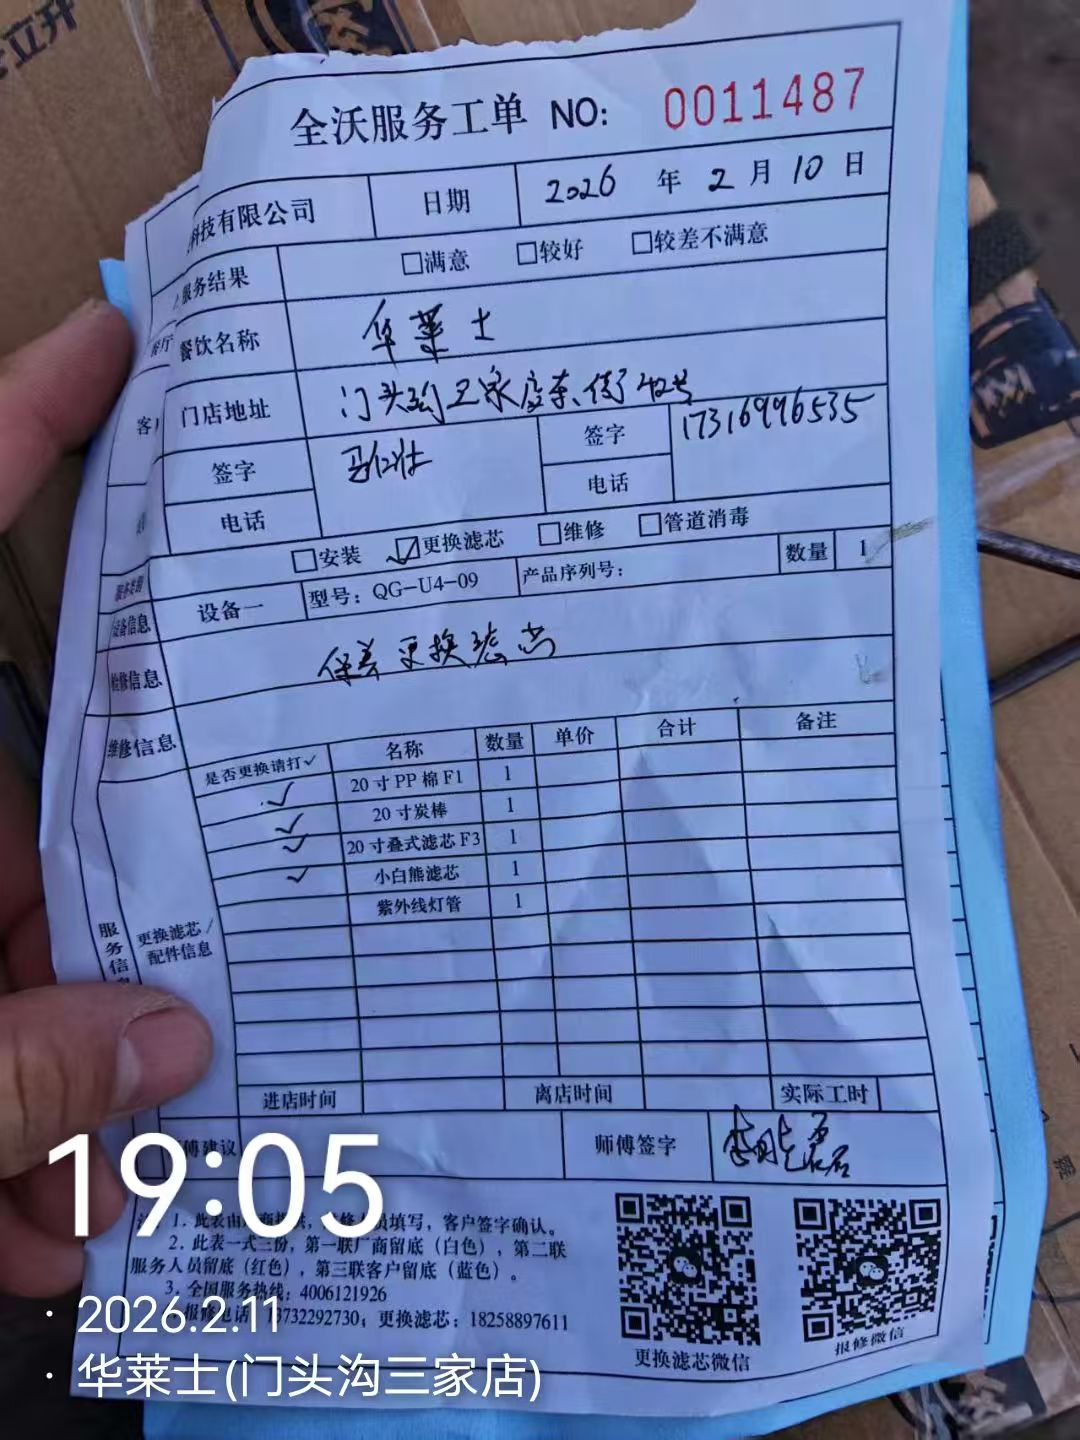 全沃服务工单 NO: 0011487
科技有限公司 日期 2026 年 2 月 10 日
服务结果 □满意 □较好 □较差不满意
餐厅
餐饮名称 华莱士
客
门店地址 门头沟三家店东街42号
签字 签字 17316996535
电话 电话
□安装 ☑更换滤芯 □维修 □管道消毒
设备信息 设备一 型号: QG-U4-09 产品序列号: 数量 1
检修信息 保养更换滤芯
维修信息
是否更换请打✓ 名称 数量 单价 合计 备注
✓ 20寸PP棉F1 1
✓ 20寸炭棒 1
✓ 20寸叠式滤芯F3 1
✓ 小白熊滤芯 1
紫外线灯管 1
服务信息
更换滤芯/
配件信息
进店时间 离店时间 实际工时
师傅建议 师傅签字
19:05
注: 1. 此表由 填写，客户签字确认。
2. 此表一式三份，第一联厂商留底（白色），第二联
服务人员留底（红色），第三联客户留底（蓝色）。
3. 全国服务热线: 4006121926
报修电话 13732292730; 更换滤芯: 18258897611
更换滤芯微信 报修微信
· 2026.2.11
· 华莱士(门头沟三家店)